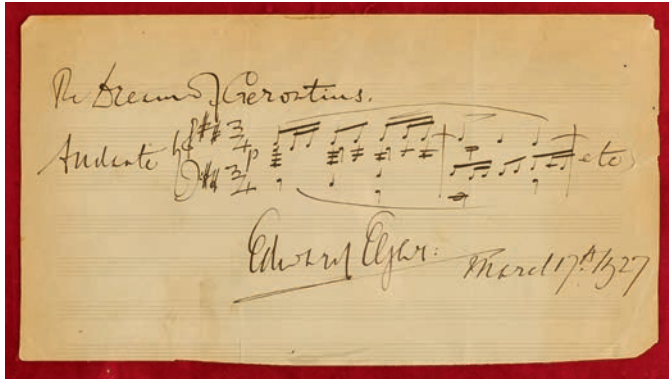 The Dream of Gerontius.
Andante p etc
Edward Elgar:
March 17th 1927